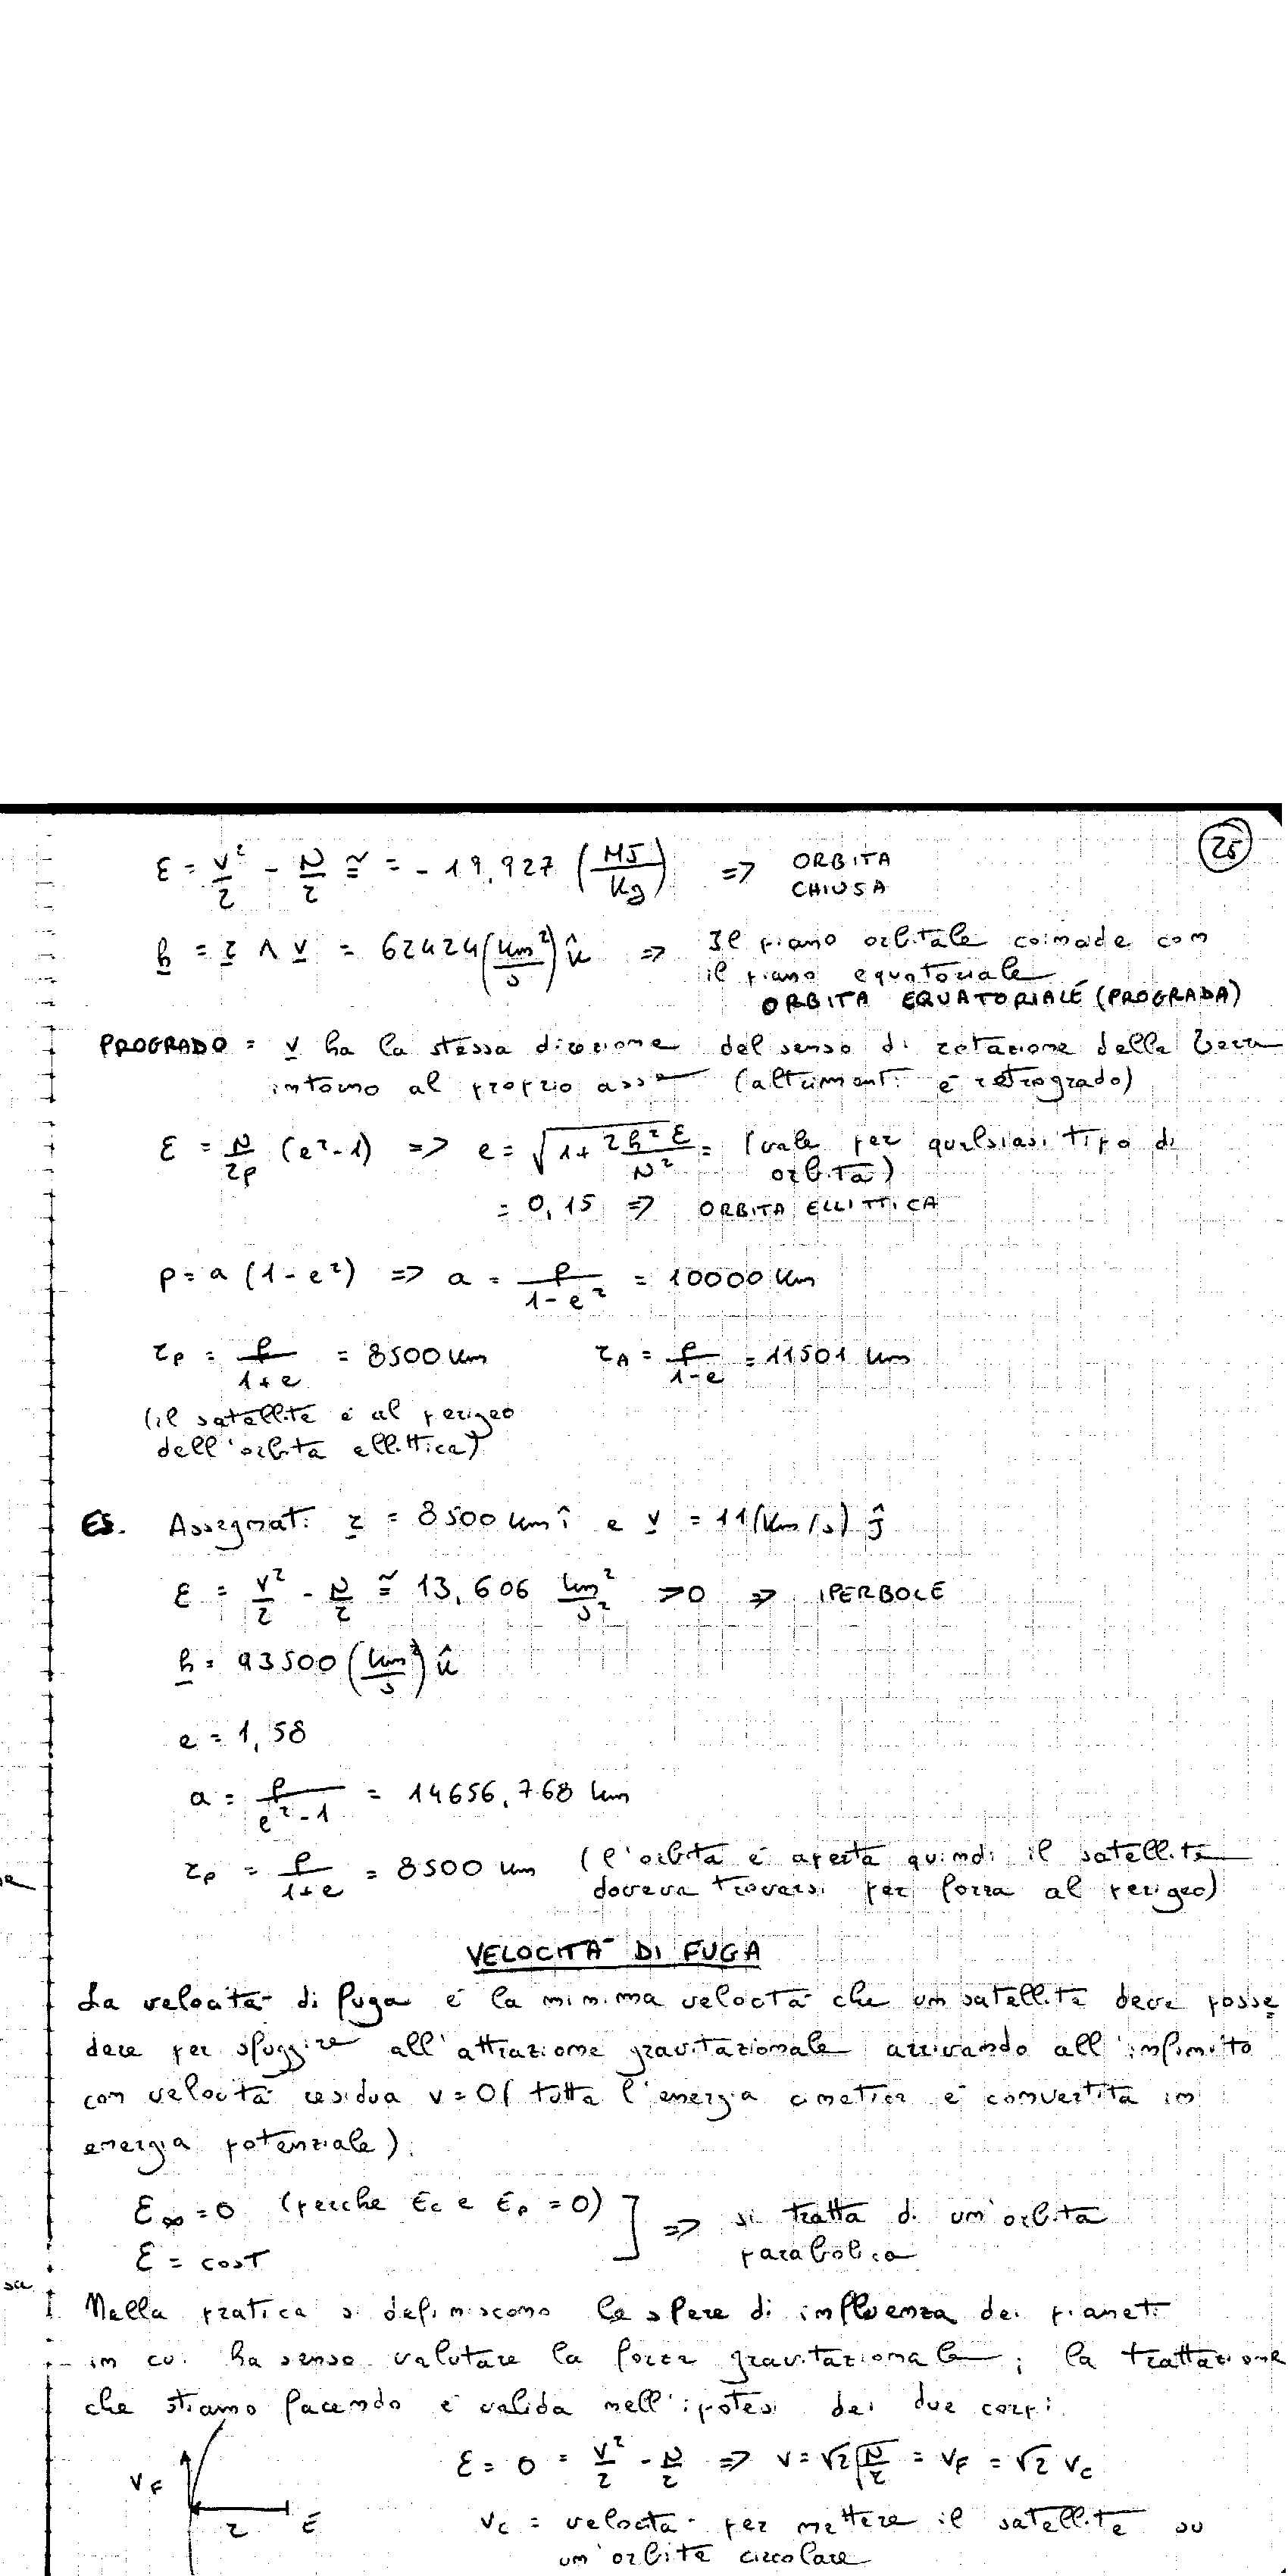 25
ε = v²/2 - μ/r ≅ = - 19,927 (MJ/Kg) => ORBITA CHIUSA
h = r ∧ v = 62424 (km²/s) k̂ => Il piano orbitale coincide con
il piano equatoriale
ORBITA EQUATORIALE (PROGRADA)
PROGRADO = v ha la stessa direzione del senso di rotazione della Terra
intorno al proprio asse (altrimenti è retrogrado)
ε = μ/2p (e²-1) => e = √(1 + 2h²ε/μ²) = (vale per qualsiasi tipo di
orbita)
= 0,15 => ORBITA ELLITTICA
p = a (1-e²) => a = p/(1-e²) = 10000 km
r_P = p/(1+e) = 8500 km r_A = p/(1-e) = 11501 km
(il satellite è al perigeo
dell'orbita ellittica)
ES. Assegnati r = 8500 km î e v = 11 (km/s) ĵ
ε = v²/2 - μ/r ≅ 13,606 km²/s² >0 => IPERBOLE
h = 93500 (km²/s) k̂
e = 1,58
a = p/(e²-1) = 14656,768 km
r_p = p/(1+e) = 8500 km (l'orbita è aperta quindi il satellite
doveva trovarsi per forza al perigeo)
VELOCITÀ DI FUGA
La velocità di fuga è la minima veloctà che un satellite deve posse
dere per sfuggire all'attrazione gravitazionale arrivando all'infinito
con velocità residua v=0 ( tutta l'energia cinetica è convertita in
energia potenziale).
ε∞ = 0 (perchè Ec e Ep = 0) ] => si tratta di un'orbita
ε = cost parabolica
Nella pratica si definiscono le sfere di influenza dei pianeti
in cui ha senso valutare la forza gravitazionale; la trattazione
che stiamo facendo è valida nell'ipotesi dei due corpi.
ε = 0 = v²/2 - μ/r => v = √2 √(μ/r) = v_F = √2 v_c
v_F
r
v_c = velocità per mettere il satellite su
un'orbita circolare